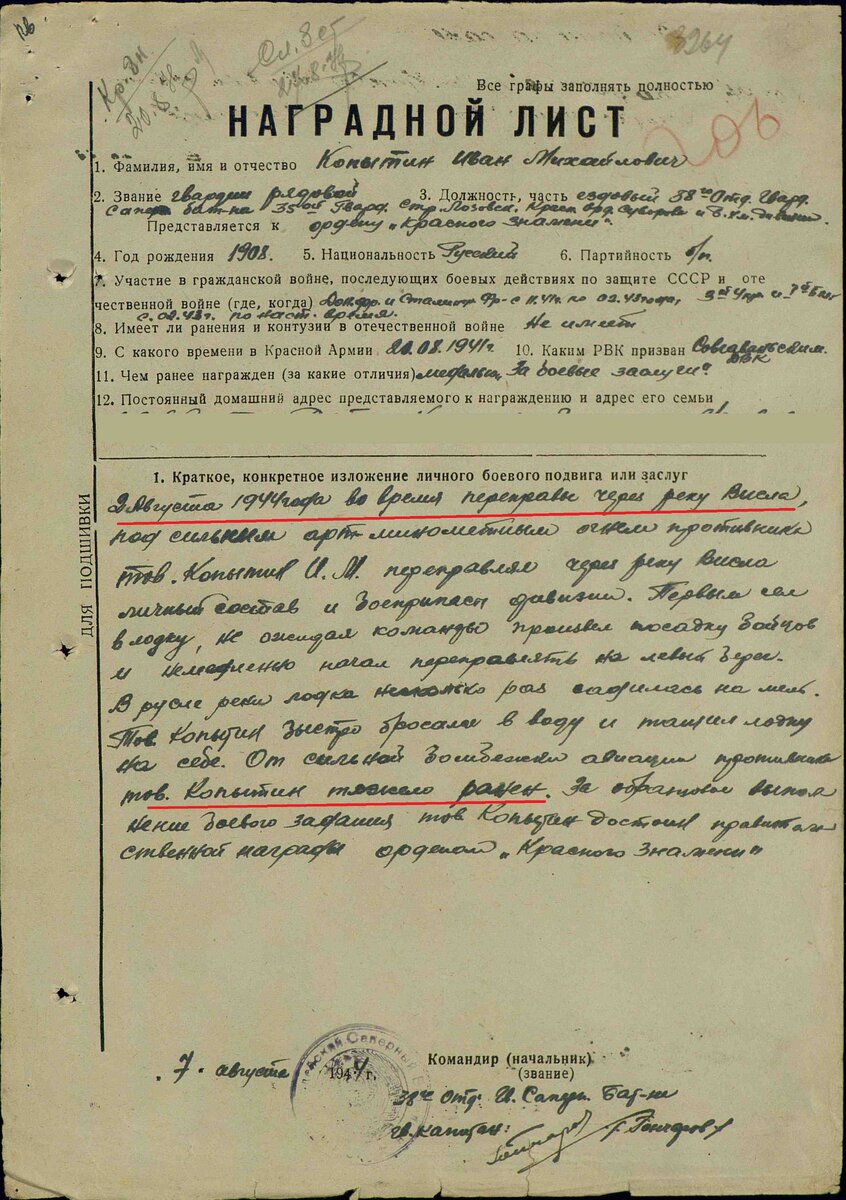 3264
Все графы заполнять полностью
НАГРАДНОЙ ЛИСТ
1. Фамилия, имя и отчество Копытин Иван Михайлович
2. Звание гвардии рядовой 3. Должность, часть ездовый 38го Отд. Гвард.
Сапер бат-на 35ой Гвард. Стр. Лозовск. Красн. орд. Суворова и Б. Хм. дивизии.
Представляется к ордену „Красного Знамени".
4. Год рождения 1908. 5. Национальность Русский 6. Партийность б/п.
7. Участие в гражданской войне, последующих боевых действиях по защите СССР и оте
чественной войне (где, когда) и Сталингр. Фр- с по 02.43года, 3ий Укр. и
с 02.43г. по наст. время.
8. Имеет ли ранения и контузии в отечественной войне Не имеет
9. С какого времени в Красной Армии 20.08.1941г 10. Каким РВК призван
РВК
11. Чем ранее награжден (за какие отличия) медалью „За боевые заслуги".
12. Постоянный домашний адрес представляемого к награждению и адрес его семьи
1. Краткое, конкретное изложение личного боевого подвига или заслуг
2 Августа 1944года во время переправы через реку Висла,
под сильным арт-минометным огнем противника
тов. Копытин И. М. переправлял через реку Висла
личный состав и боеприпасы дивизии. Первым сел
в лодку, не ожидая команды произвел посадку бойцов
и немедленно начал переправлять на левый берег.
В русле реки лодка несколько раз садилась на мель.
Тов Копытин быстро бросался в воду и тащил лодку
на себе. От сильной бомбежки авиации противника
тов. Копытин тяжело ранен. За образцовое выпол
нение боевого задания тов Копытин достоин правитель
ственной награды орденом „Красного Знамени"
ДЛЯ ПОДШИВКИ
7 августа 1944 г.
Командир (начальник)
(звание)
38го Отд. Гв. Саперн. Бат-на
Гв. капитан: Гончаров